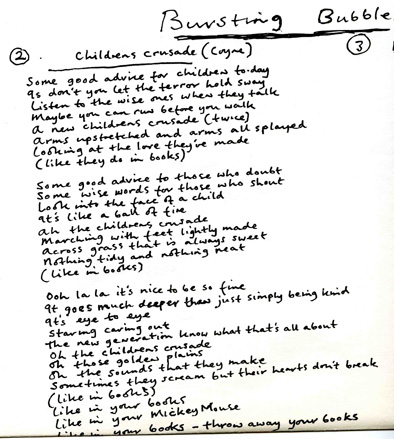 Bursting Bubble
②
③
Childrens crusade (Coyne)
Some good advice for children to-day
Is don't you let the terror hold sway
Listen to the wise ones when they talk
Maybe you can run before you walk
A new childrens crusade (twice)
Arms upstretched and arms all splayed
Looking at the love they've made
(like they do in books)
Some good advice to those who doubt
Some wise words for those who shout
Look into the face of a child
It's like a ball of fire
Ah the childrens crusade
Marching with feet lightly made
Across grass that is always sweet
Nothing tidy and nothing neat
(like in books)
Ooh la la it's nice to be so fine
It goes much deeper than just simply being kind
It's eye to eye
Staring caring out
The new generation know what that's all about
Oh the childrens crusade
Oh those golden plains
Oh the sounds that they make
Sometimes they scream but their hearts don't break
(like in books)
Like in your books
Like in your Mickey Mouse
Like in your books - throw away your books